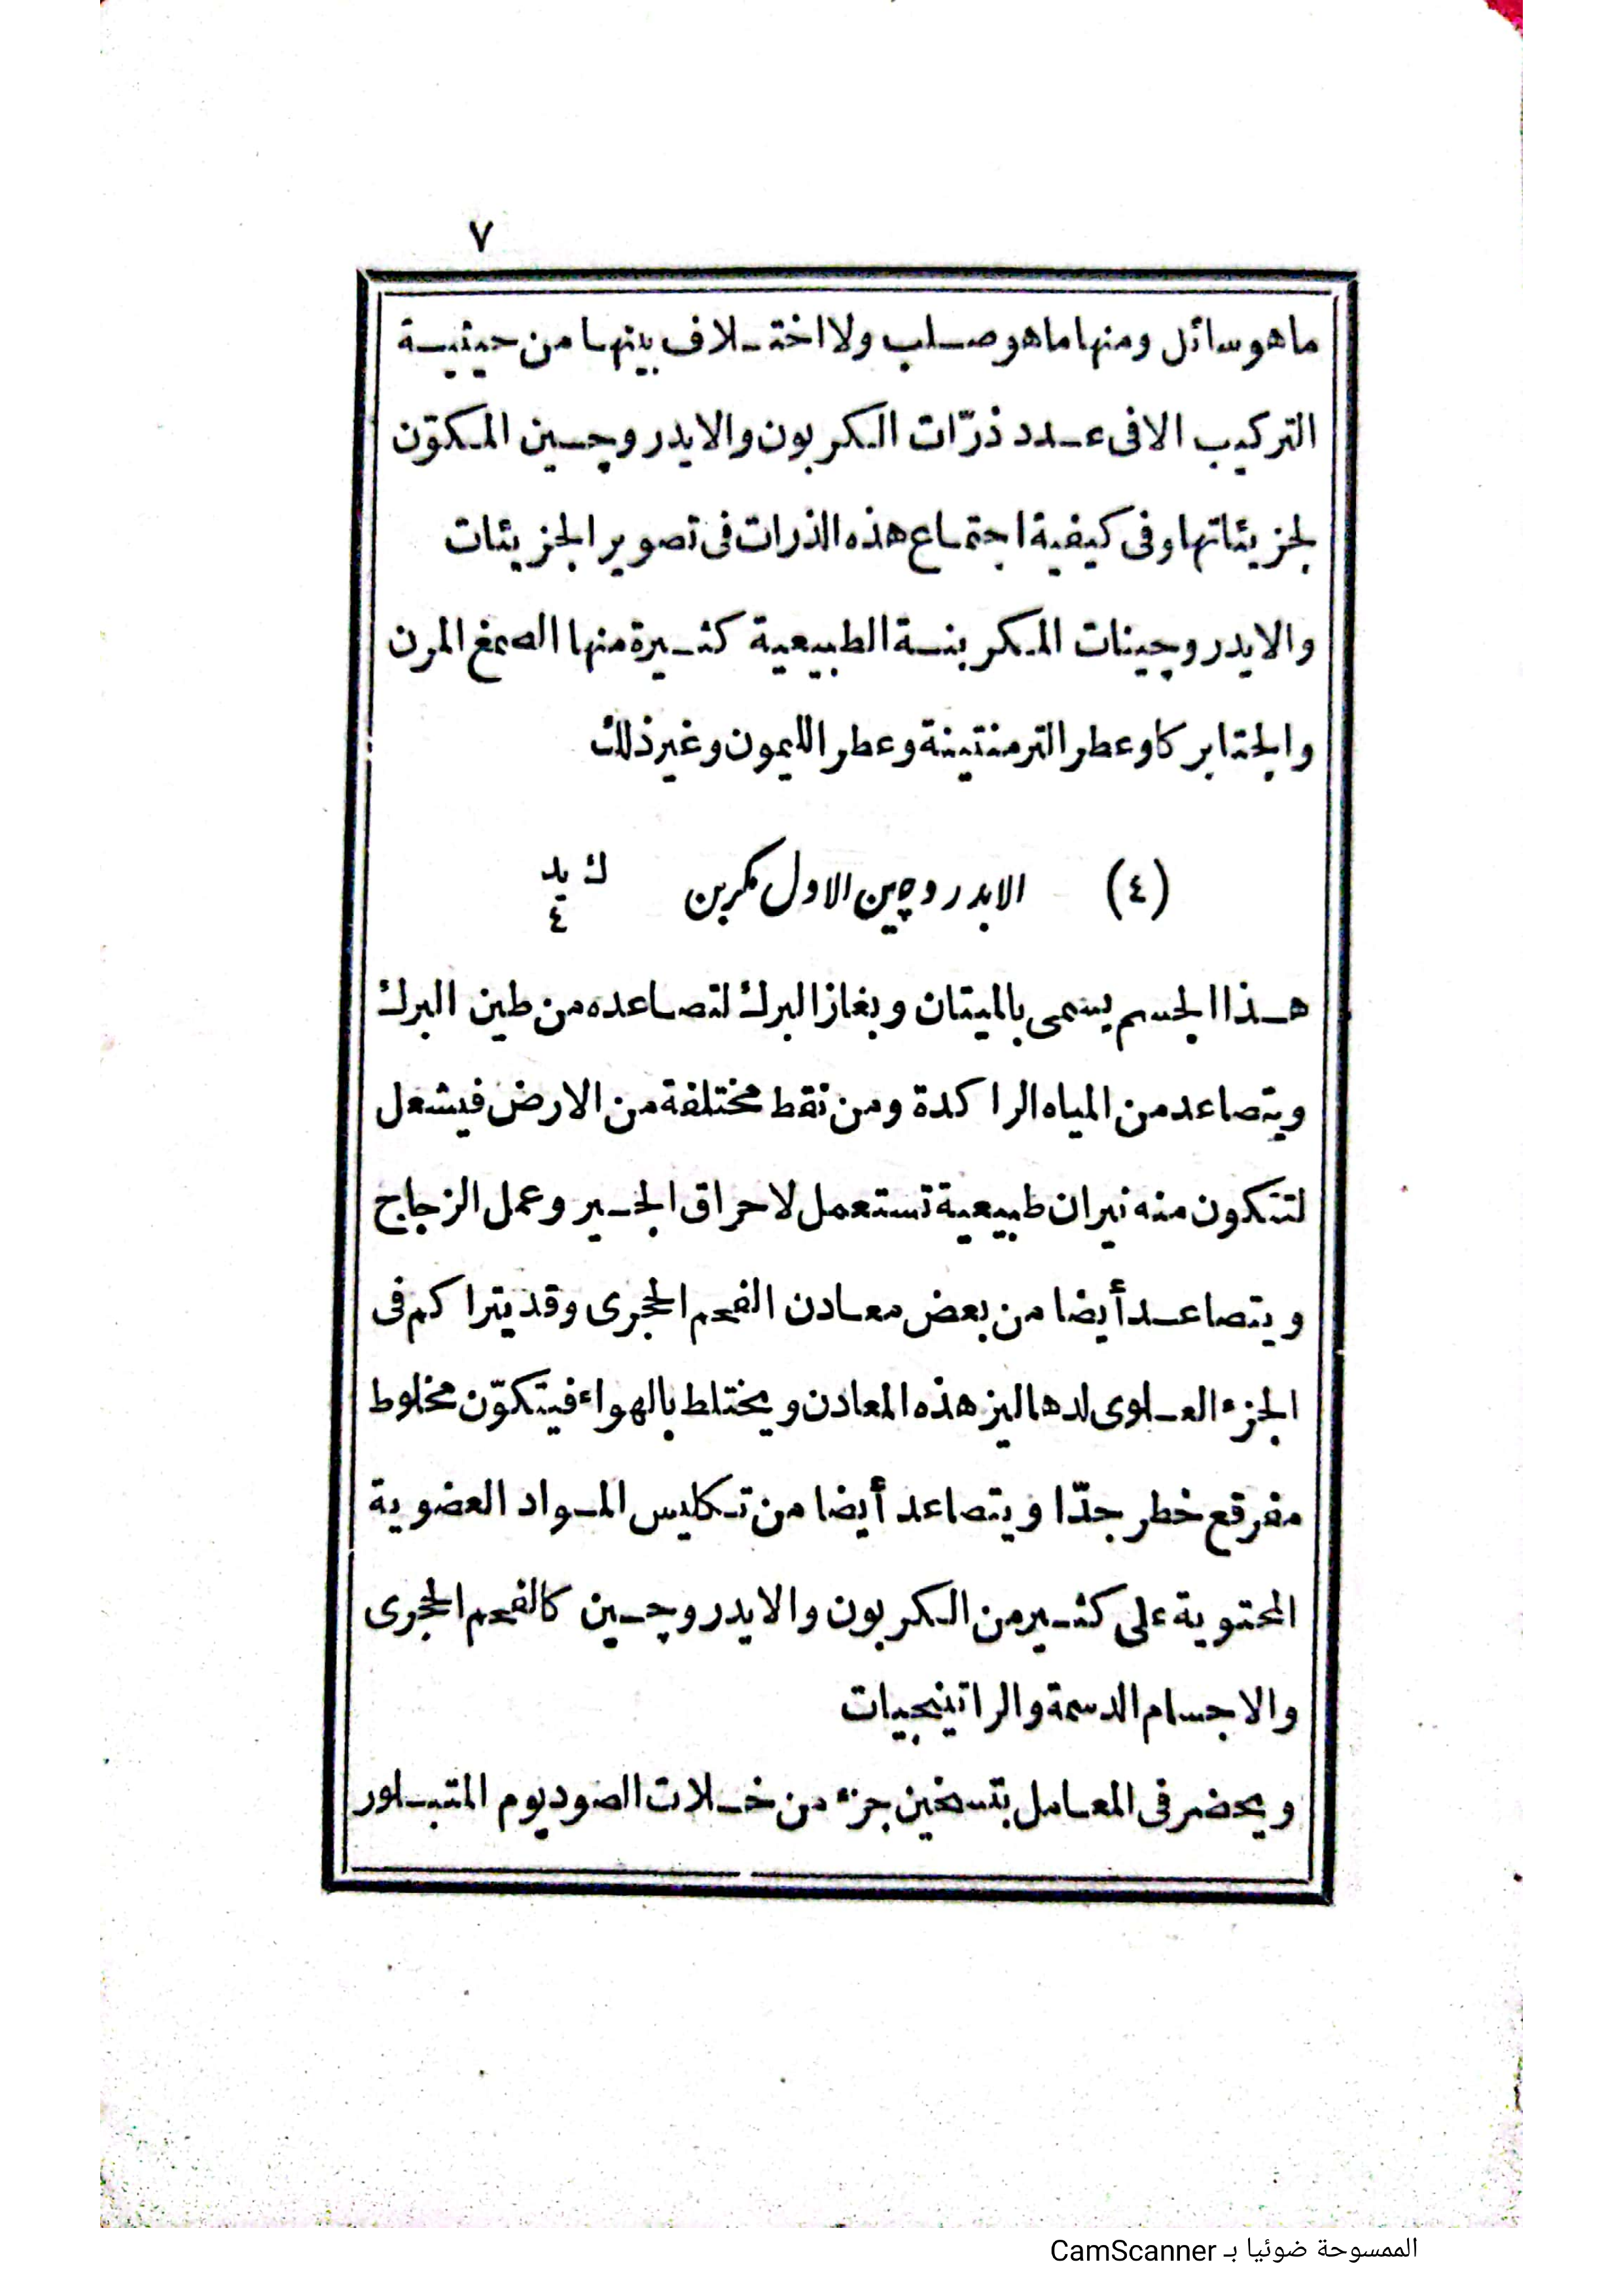 ٧
ما هو سائل ومنها ما هو صلب ولا اختلاف بينها من حيثية
التركيب الا فى عدد ذرّات الكربون والايدروچين المكوّن
لجزيئاتها وفى كيفية اجتماع هذه الذرات فى تصوير الجزيئات
والايدروچينات المكربنة الطبيعية كثيرة منها الصمغ المرن
والجتابركا وعطر الترمنتينة وعطر الليمون وغير ذلك
(٤) الايدروچين الاول مكربن ك يد ٤
هذا الجسم يسمى بالميتان وبغاز البرك لتصاعده من طين البرك
ويتصاعد من المياه الراكدة ومن نقط مختلفة من الارض فيشعل
لتتكون منه نيران طبيعية تستعمل لاحراق الجير وعمل الزجاج
ويتصاعد أيضا من بعض معادن الفحم الحجرى وقد يتراكم فى
الجزء العلوى لدهاليز هذه المعادن ويختلط بالهواء فيتكوّن مخلوط
مفرقع خطر جدّا ويتصاعد أيضا من تكليس المواد العضوية
المحتوية على كثير من الكربون والايدروچين كالفحم الحجرى
والاجسام الدسمة والراتينجيات
ويحضر فى المعامل بتسخين جزء من خلات الصوديوم المتبلور
الممسوحة ضوئيا بـ CamScanner